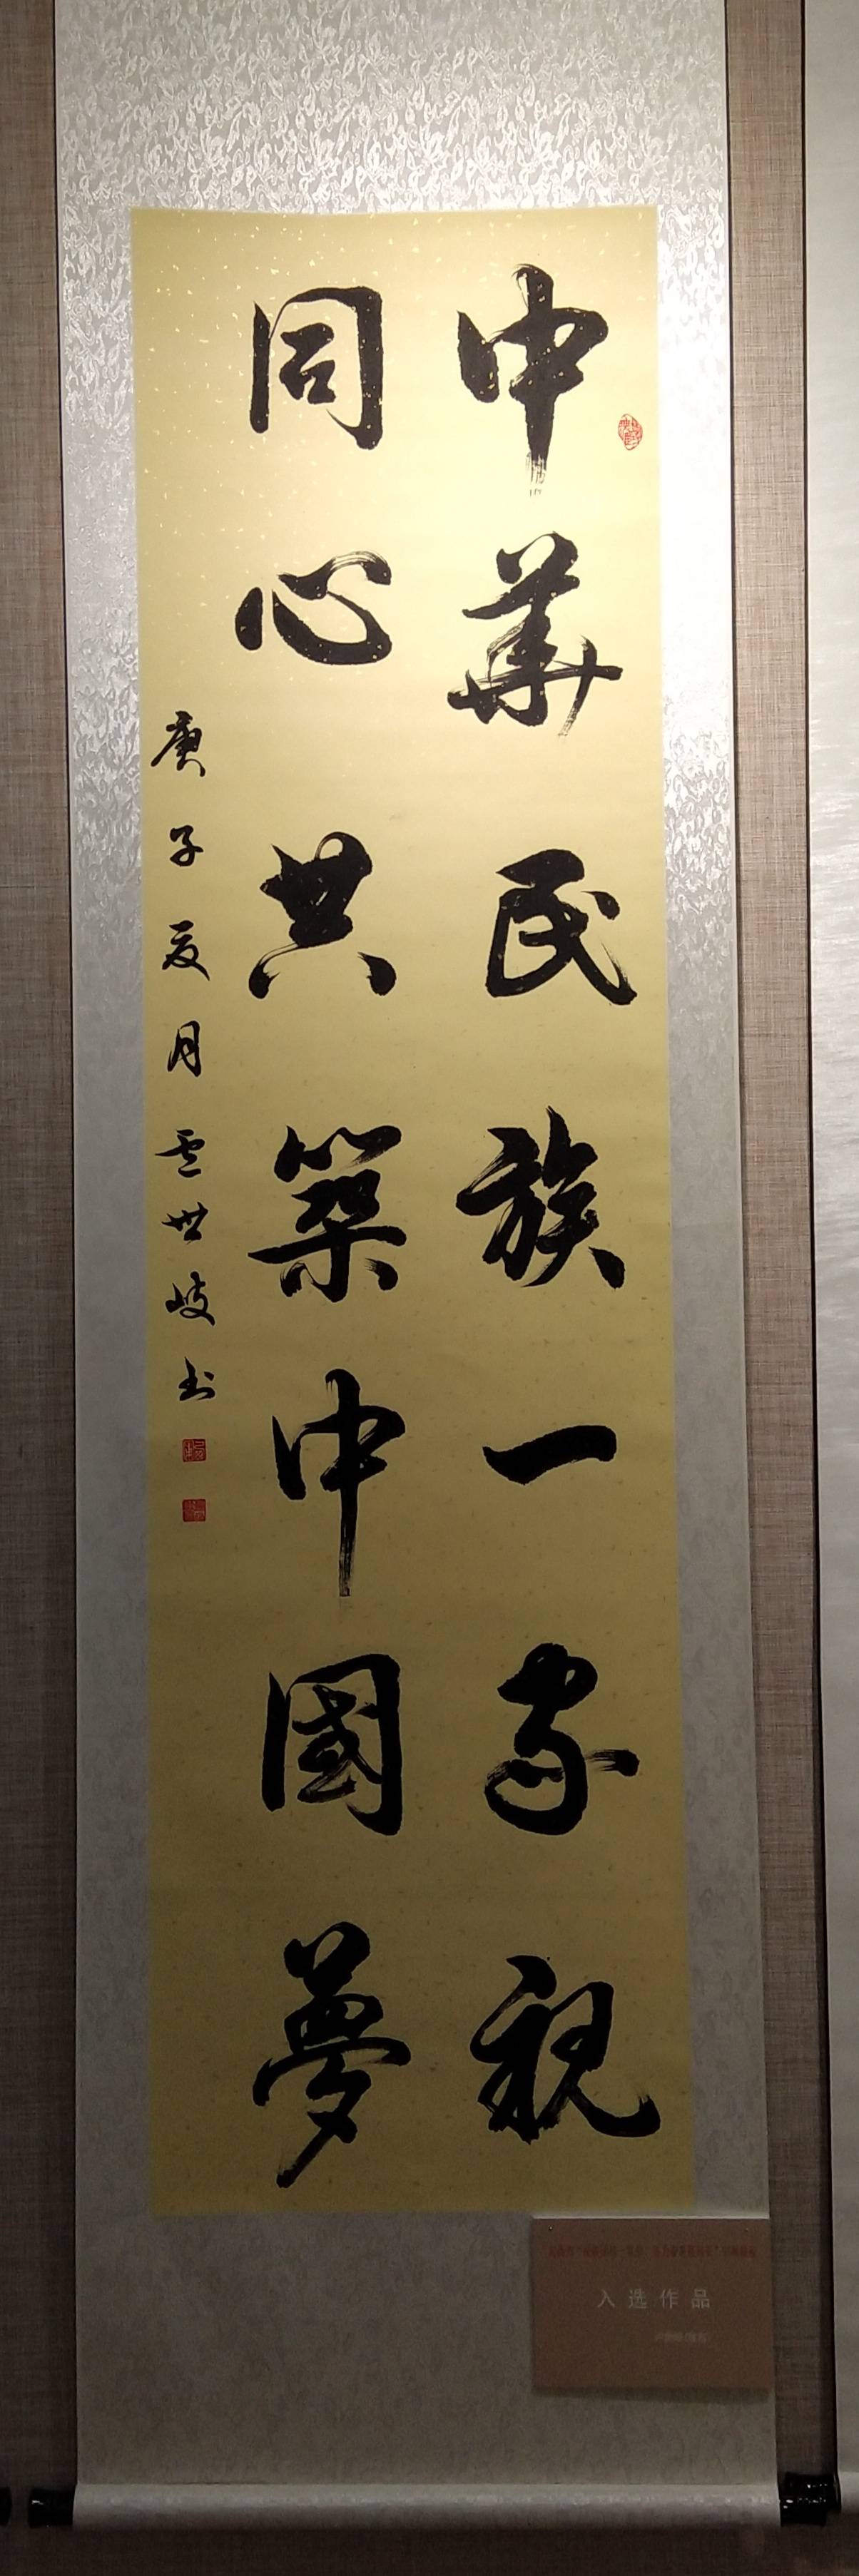 中華民族一家親
同心共築中國夢
庚子夏月盧世岐书
入选作品